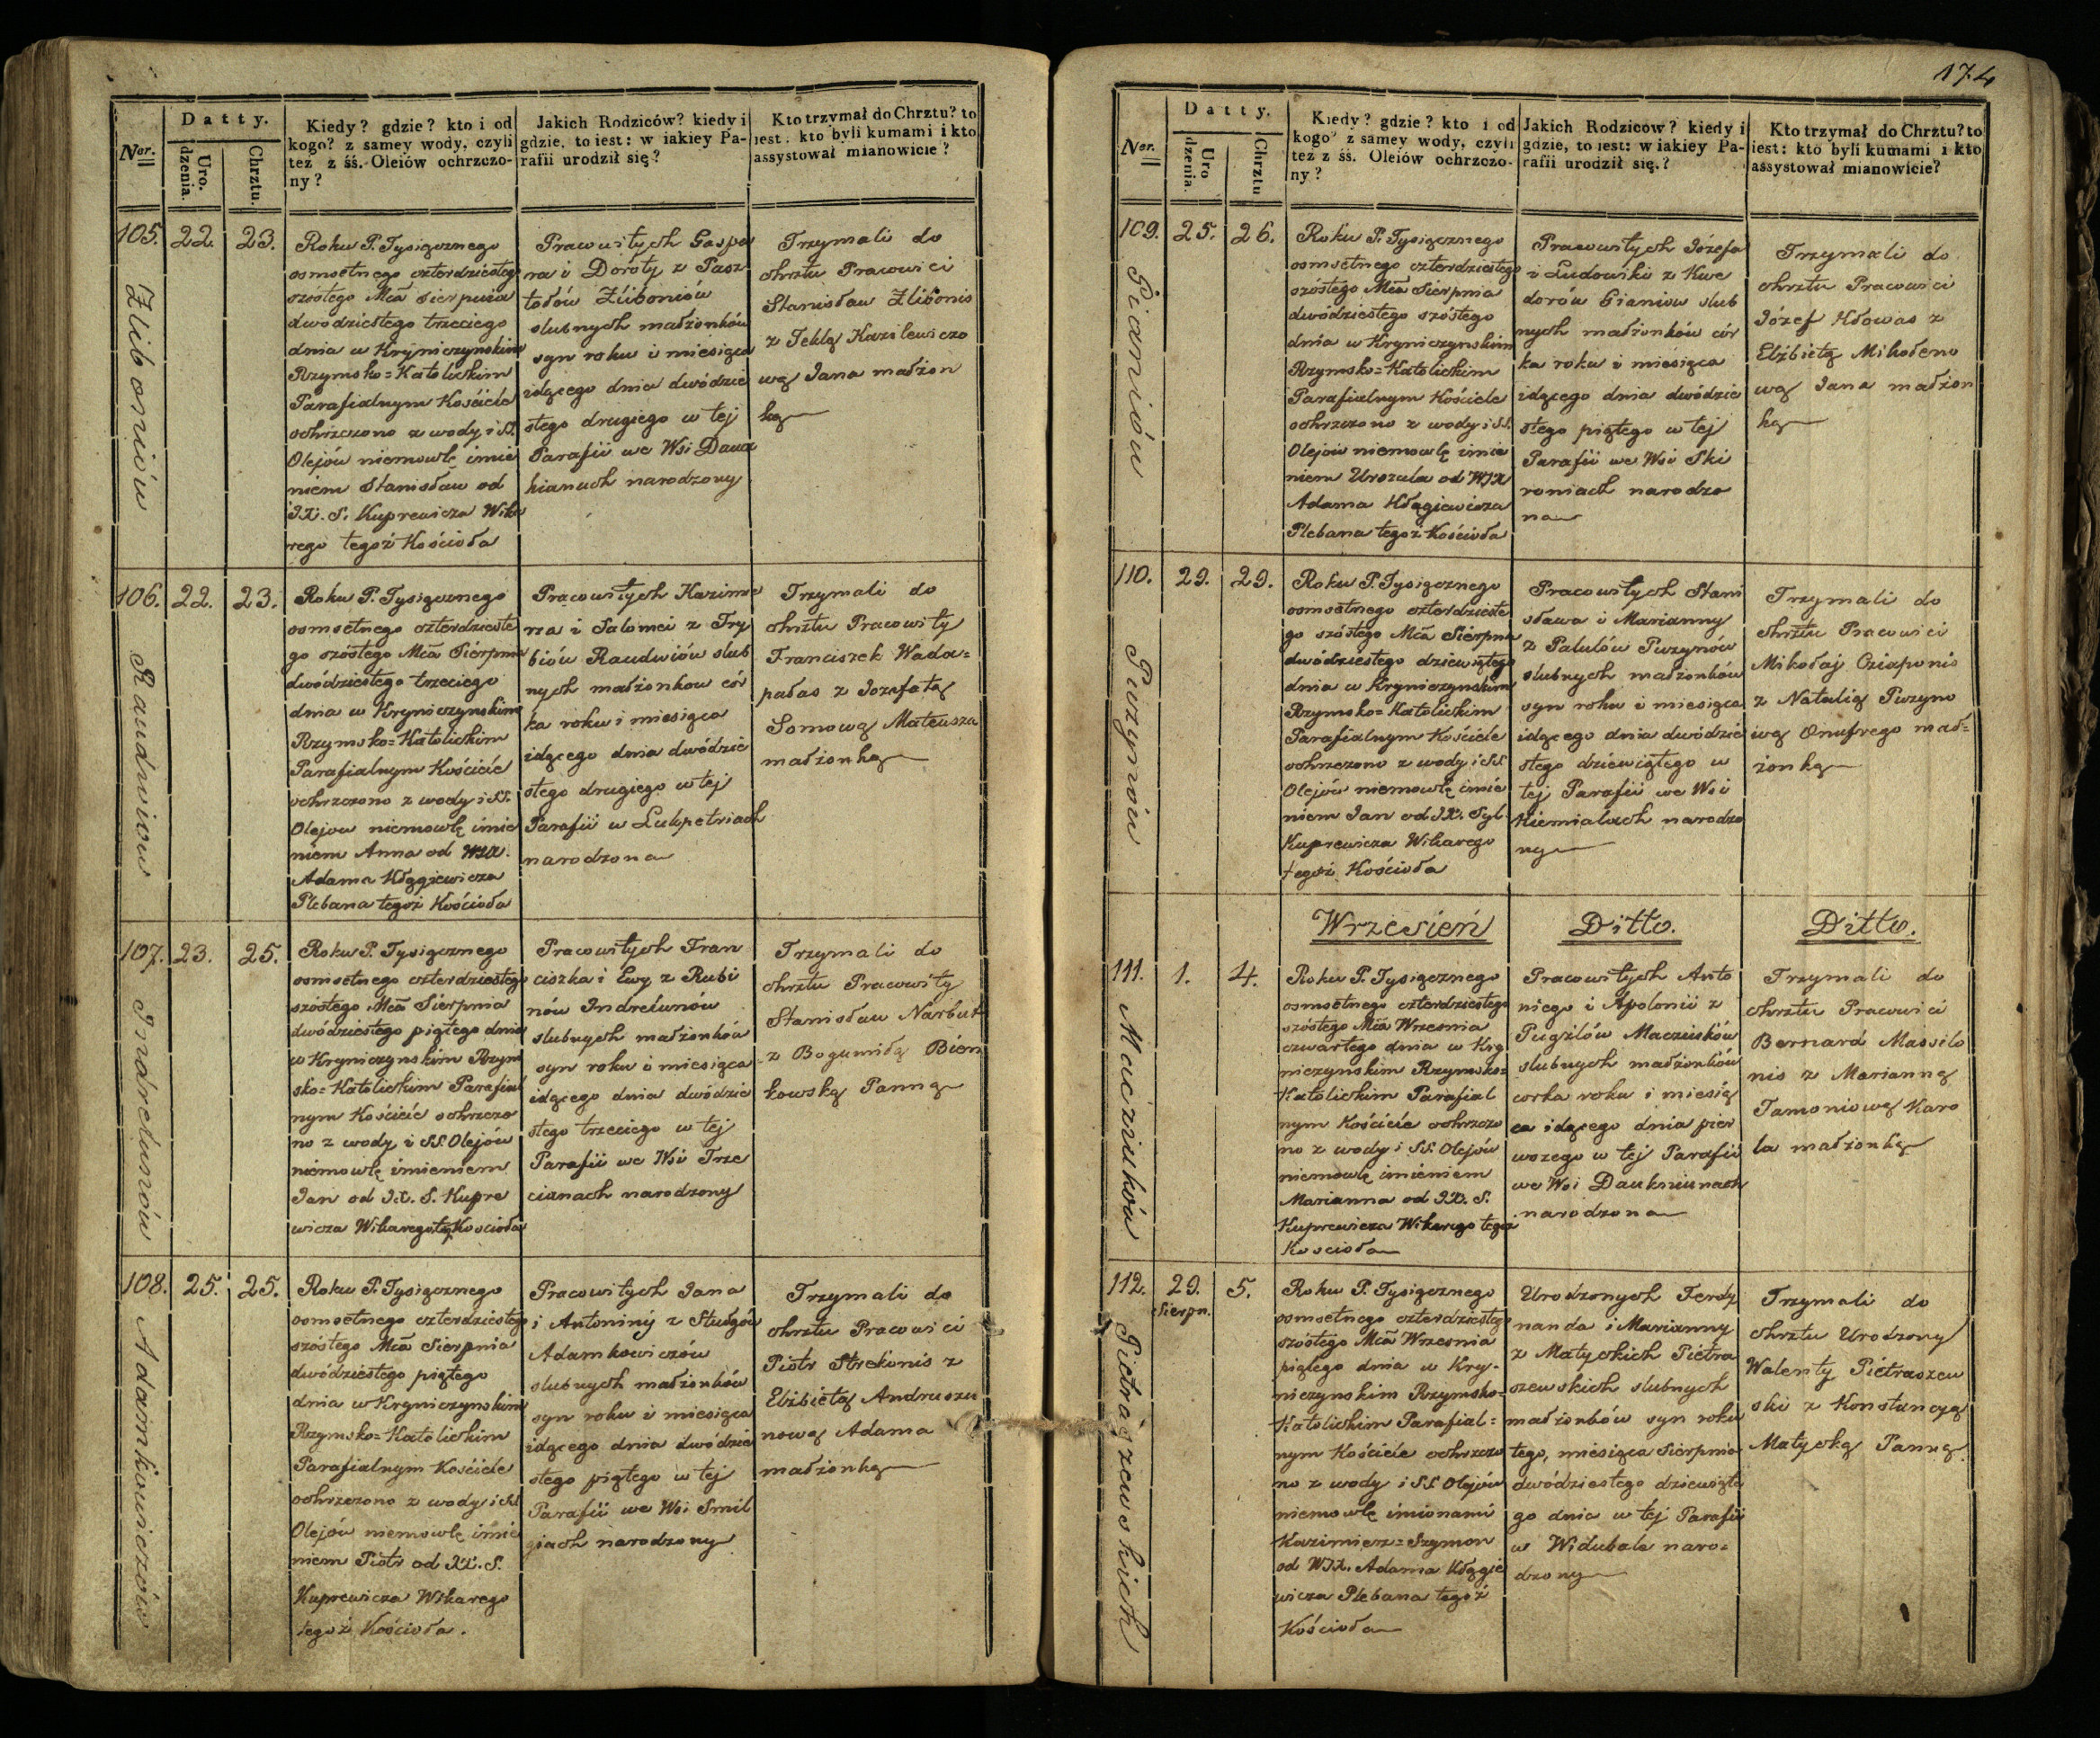 Nor.
Datty.
Uro.
dzenia.
Chrztu.
Kiedy? gdzie? kto i od
kogo? z samey wody, czyli
też z śś. Oleiów ochrzczo-
ny?
Jakich Rodziców? kiedy i
gdzie, to iest: w iakiey Pa-
rafii urodził się?
Kto trzymał do Chrztu? to
iest, kto byli kumami i kto
assystował mianowicie?
105.
Zliboniów
22.
23.
Roku P. Tysiącznego
osmsetnego czterdziestego
szóstego Mca Sierpnia
dwódziestego trzeciego
dnia w Kryniczynskim
Rzymsko=Katolickim
Parafialnym Kościele
ochrzczono z wody i SS.
Olejów niemowlę imie
niem Stanisław od
JX. S. Kuprewicza Wika
rego tegoż Kościoła
Pracowitych Gaspa
ra i Doroty z Pasz
tołów Zliboniów
slubnych małżonków
syn roku i miesiąca
idącego dnia dwódzie
stego drugiego w tej
Parafii we Wsi Daux
kianach narodzony
Trzymali do
chrztu Pracowici
Stanisław Zlibonis
z Teklą Kazilewiczo
wą Jana małżon
ką
106.
Raudwiów
22.
23.
Roku P. Tysiącznego
osmsetnego czterdzieste
go szóstego Mca Sierpnia
dwódziestego trzeciego
dnia w Kryniczynskim
Rzymsko=Katolickim
Parafialnym Kościele
ochrzczono z wody i SS.
Olejow niemowlę imie
niem Anna od WJX.
Adama Kłągiewicza
Plebana tegoż Kościoła
Pracowitych Kazimie
rza i Salomei z Try
biów Raudwiów slub
nych małżonkow cór
ka roku i miesiąca
idącego dnia dwódzie
stego drugiego w tej
Parafii w Lukpetriach
narodzona
Trzymali do
chrztu Pracowity
Franciszek Wada=
pałas z Jozefatą
Somową Mateusza
małżonką
107.
Indrelunów
23.
25.
Roku P. Tysiącznego
osmsetnego czterdziestego
szóstego Mca Sierpnia
dwódziestego piątego dnia
w Kryniczynskim Rzym
sko=Katolickim Parafial
nym Kościele ochrzczo
no z wody i SS. Olejów
niemowlę imieniem
Jan od JX. S. Kupre
wicza Wikarego teg. Kościoła
Pracowitych Fran
ciszka i Ewy z Rubi
nów Indrelunów
slubnych małżonków
syn roku i miesiąca
idącego dnia dwódzie
stego trzeciego w tej
Parafii we Wsi Trze
cianach narodzony
Trzymali do
chrztu Pracowity
Stanisław Narbut
z Bogumiłą Bien
kowską Panną
108.
Adamkowiczów
25.
25.
Roku P. Tysiącznego
osmsetnego czterdziestego
szóstego Mca Sierpnia
dwódziestego piątego
dnia w Kryniczynskim
Rzymsko=Katolickim
Parafialnym Kościele
ochrzczono z wody i SS.
Olejów niemowlę imie
niem Piotr od JX. S.
Kuprewicza Wikarego
tegoż Kościoła.
Pracowitych Jana
i Antoniny z Stulgów
Adamkowiczów
slubnych małżonków
syn roku i miesiąca
idącego dnia dwódzie
stego piątego w tej
Parafii we Wsi Smil
giach narodzony
Trzymali do
chrztu Pracowici
Piotr Strekonis z
Elżbietą Andruszu
nową Adama
małżonką
174
Nor.
Datty.
Uro
dzenia.
Chrztu
Kiedy? gdzie? kto i od
kogo? z samey wody, czyli
też z śś. Oleiów ochrzczo-
ny?
Jakich Rodziców? kiedy i
gdzie, to iest: w iakiey Pa-
rafii urodził się.?
Kto trzymał do Chrztu? to
iest: kto byli kumami i kto
assystował mianowicie?
109.
Gianiów
25.
26.
Roku P. Tysiącznego
osmsetnego czterdziestego
szóstego Mca Sierpnia
dwódziestego szóstego
dnia w Kryniczynskim
Rzymsko=Katolickim
Parafialnym Kościele
ochrzczono z wody i SS.
Olejów niemowlę imie
niem Urszula od WJX
Adama Kłągiewicza
Plebana tegoż Kościoła
Pracowitych Józefa
i Ludowiki z Kwe
dorów Gianiow slub
nych małżonków cór
ka roku i miesiąca
idącego dnia dwódzie
stego piątego w tej
Parafii we Wsi Ski
roniach narodzo
na
Trzymali do
chrztu Pracowici
Józef Kłowas z
Elżbietą Mikołeno
wą Jana małżon
ką
110.
Puzynów
29.
29.
Roku P. Tysiącznego
osmsetnego czterdzieste
go szóstego Mca Sierpnia
dwódziestego dziewiątego
dnia w Kryniczynskim
Rzymsko=Katolickim
Parafialnym Kościele
ochrzczono z wody i SS.
Olejów niemowlę imie
niem Jan od JX. Syl.
Kuprewicza Wikarego
tegoż Kościoła
Pracowitych Stani
sława i Marianny
z Palulów Puzynów
slubnych małżonków
syn roku i miesiąca
idącego dnia dwódzie
stego dziewiątego w
tej Parafii we Wsi
Kiemialach narodzo
ny
Trzymali do
chrztu Pracowici
Mikołaj Cziaponis
z Natalią Puzyno
wą Onufrego mał=
żonką
Wrzesień
Ditto.
Ditto.
111.
Macziuków
1.
4.
Roku P. Tysiącznego
osmsetnego czterdziestego
szóstego Mca Wrzesnia
czwartego dnia w Kry
niczynskim Rzymsko=
Katolickim Parafial
nym Kościele ochrzczo
no z wody i SS. Olejów
niemowlę imieniem
Marianna od JX. S.
Kuprewicza Wikarego tegoż
Kościoła
Pracowitych Anto
niego i Apolonii z
Pugzlów Macziuków
slubnych małżonków
corka roku i miesią
ca idącego dnia pier
wszego w tej Parafii
we Wsi Daukniunach
narodzona
Trzymali do
chrztu Pracowici
Bernard Massilo
nis z Marianną
Tamoniową Karo
la małżonką
112.
Pietraszewskich
29.
Sierpn.
5.
Roku P. Tysiącznego
osmsetnego czterdziestego
szóstego Mca Wrzesnia
piątego dnia w Kry-
niczynskim Rzymsko=
Katolickim Parafial=
nym Kościele ochrzczo
no z wody i SS. Olejów
niemowlę imionami
Kazimierz=Szymon
od WJX. Adama Kłągie
wicza Plebana tegoż
Kościoła
Urodzonych Ferdy
nanda i Marianny
z Matyckich Pietra
szewskich slubnych
małżonków syn roku
tego, miesiąca Sierpnia
dwódziestego dziewiąte
go dnia w tej Parafii
w Widubale naro=
dzony
Trzymali do
chrztu Urodzony
Walenty Pietraszew
ski z Konstancyą
Matycką Panną